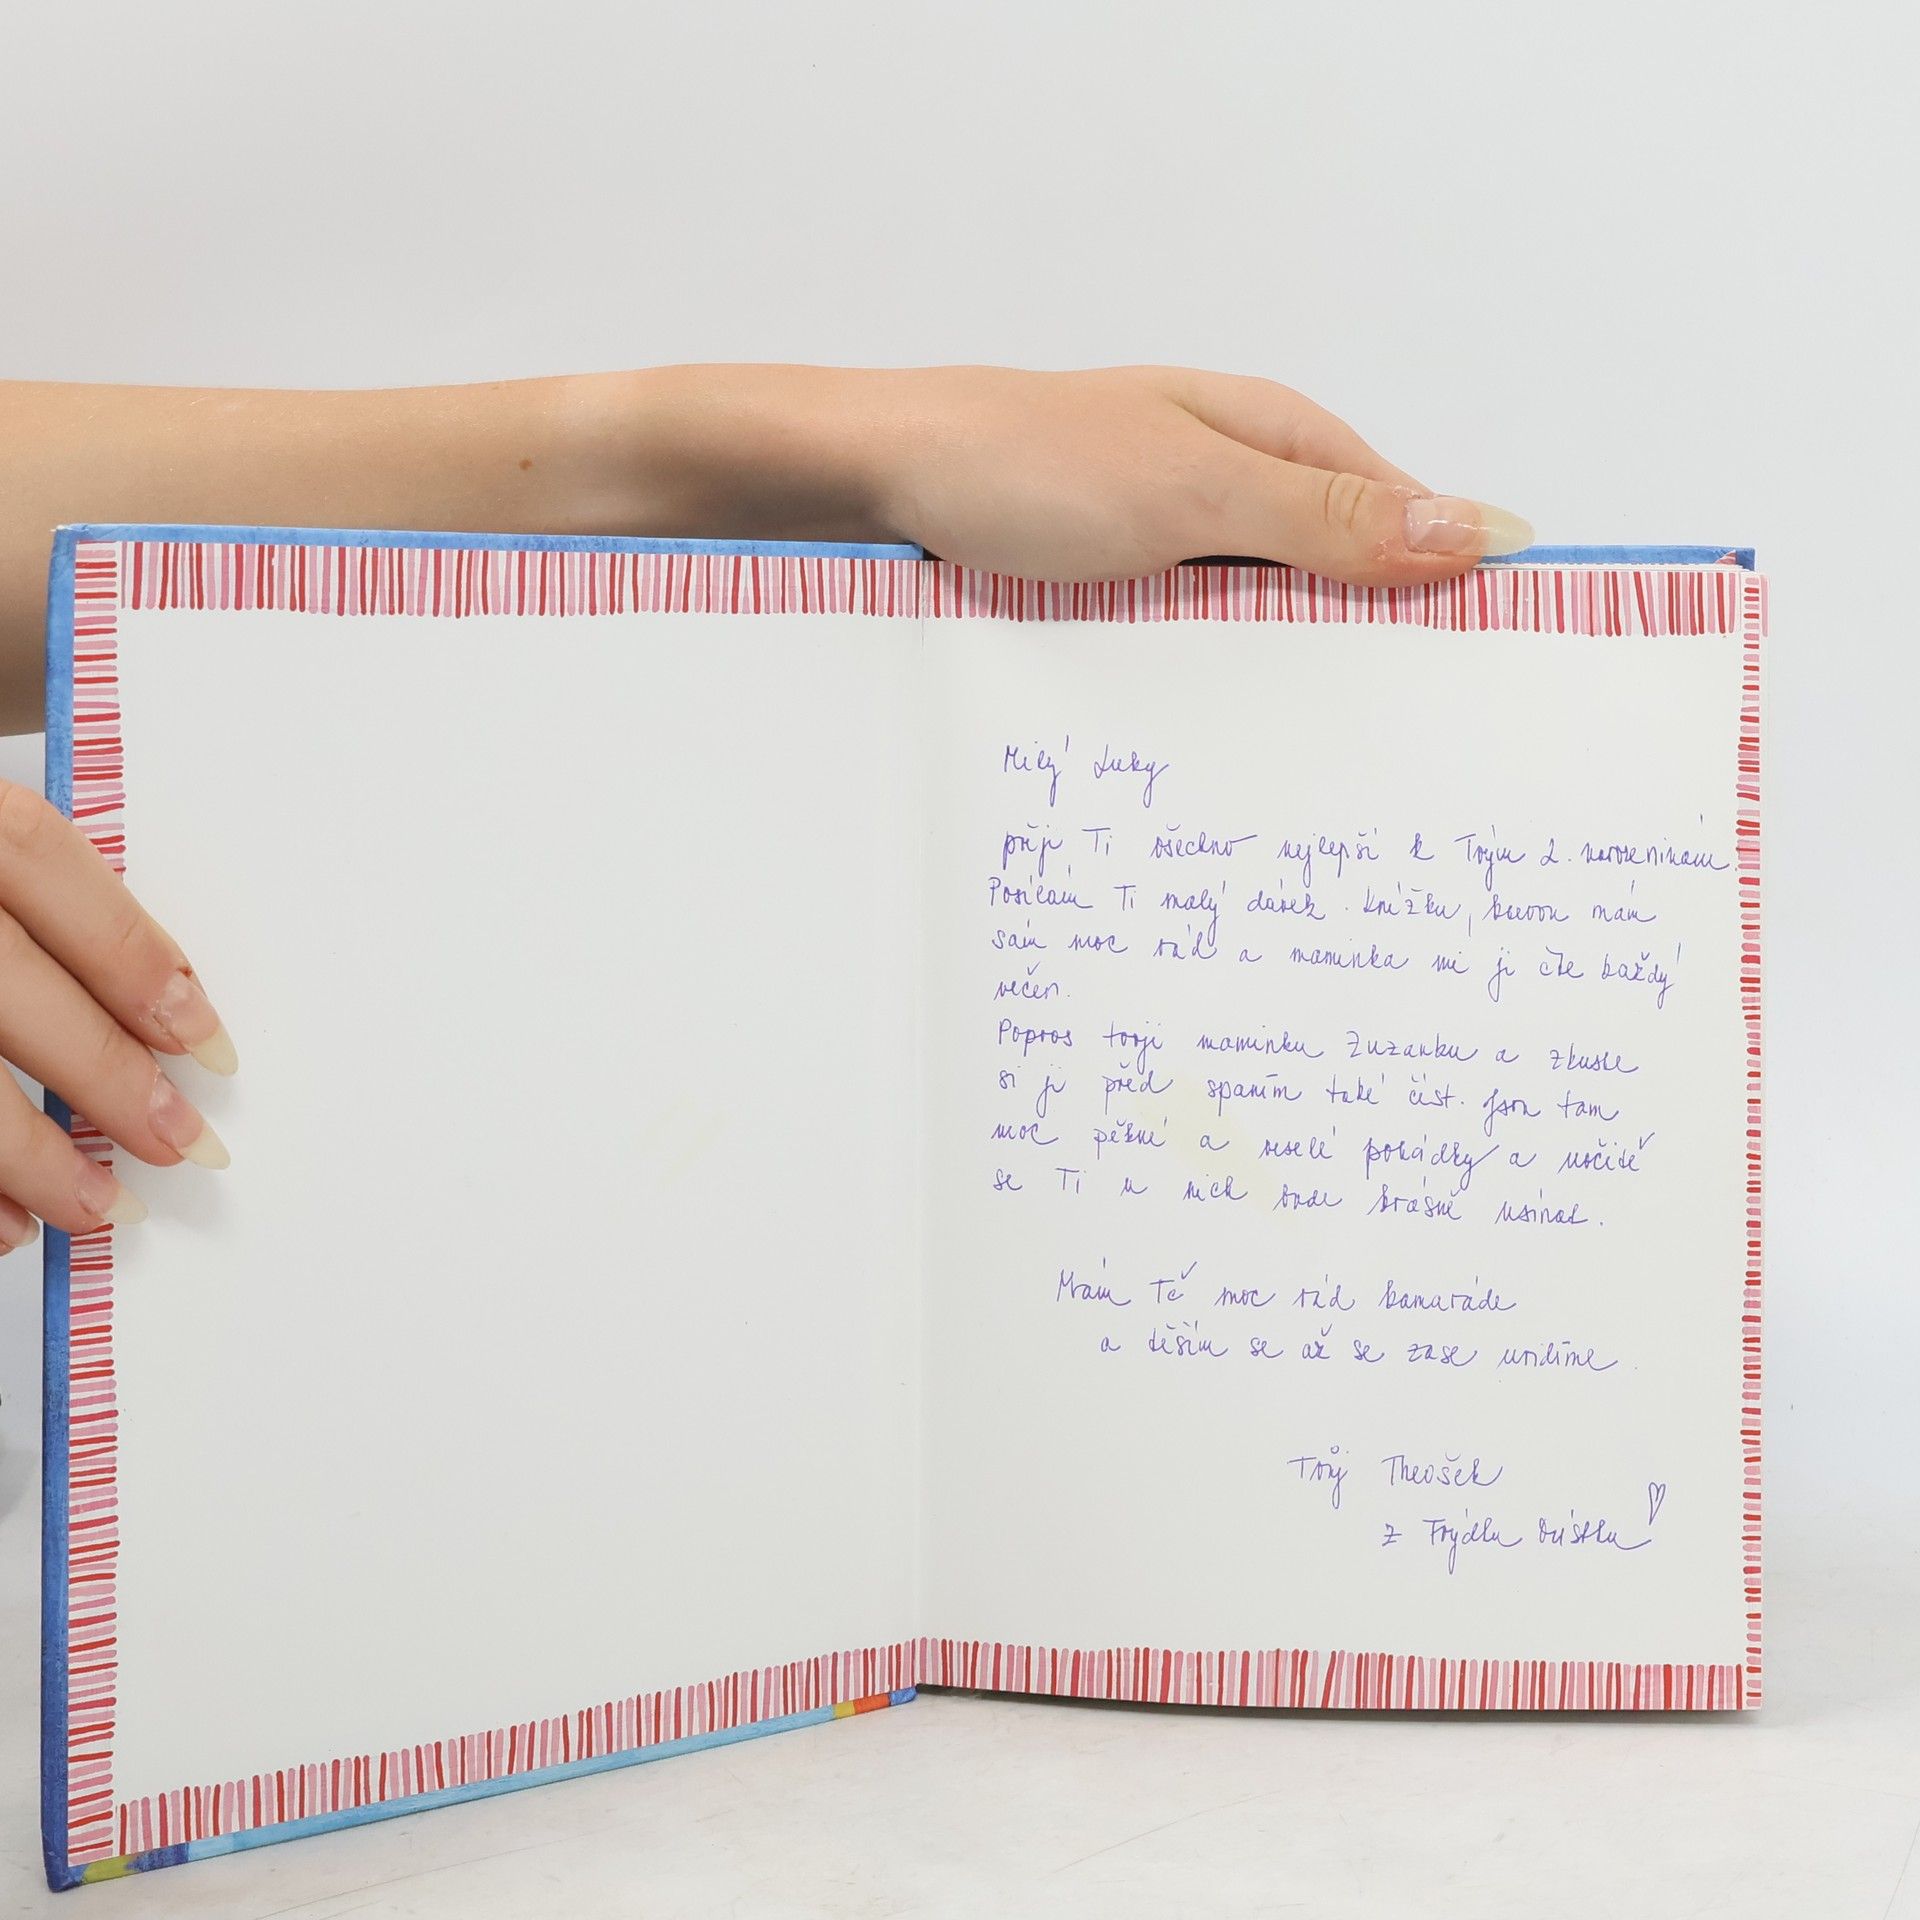 Milý Luky
přeji Ti všechno nejlepší k Tvým 2. narozeninám.
Posílám Ti malý dárek. Knížku, kterou mám
sám moc rád a maminka mi ji čte každý
večer.
Popros tvoji maminku Zuzanku a zkuste
si ji před spaním také číst. Jsou tam
moc pěkné a veselé pohádky a určitě
se Ti u nich bude krásně usínat.
Mám Tě moc rád kamaráde
a těším se až se zase uvidíme.
Tvůj Theošek
z Frýdku Místku